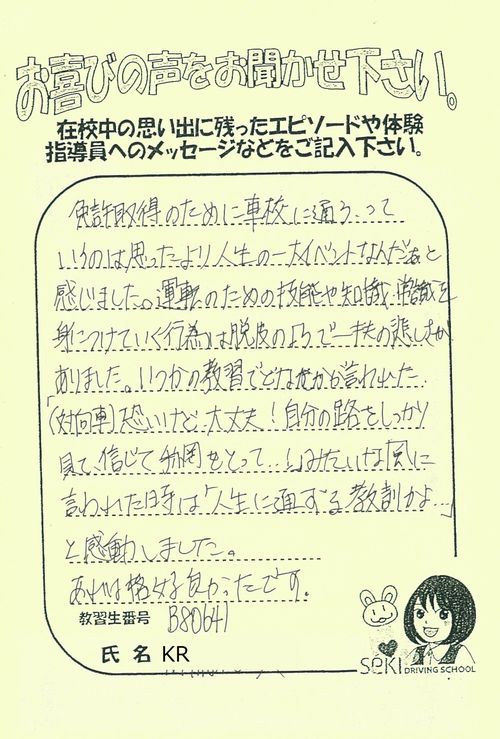 お喜びの声をお聞かせ下さい。
在校中の思い出に残ったエピソードや体験
指導員へのメッセージなどをご記入下さい。
免許取得のために車校に通うって
いうのは思ったより人生の一大イベントなんだぁと
感じました。運転のための技能や知識、常識を
身につけていく行為は脱皮のようで一抹の悲しさが
ありました。いつかの教習でどなたかから言われた
「(対向車)恐いけど大丈夫！自分の路をしっかり
見て、信じて 間をとって…」みたいな風に
言われた時は「人生に通ずる教訓かよ…」
と感動しました。
あれは格好良かったです。
教習生番号 B80641
氏名 KR
SEKI DRIVING SCHOOL